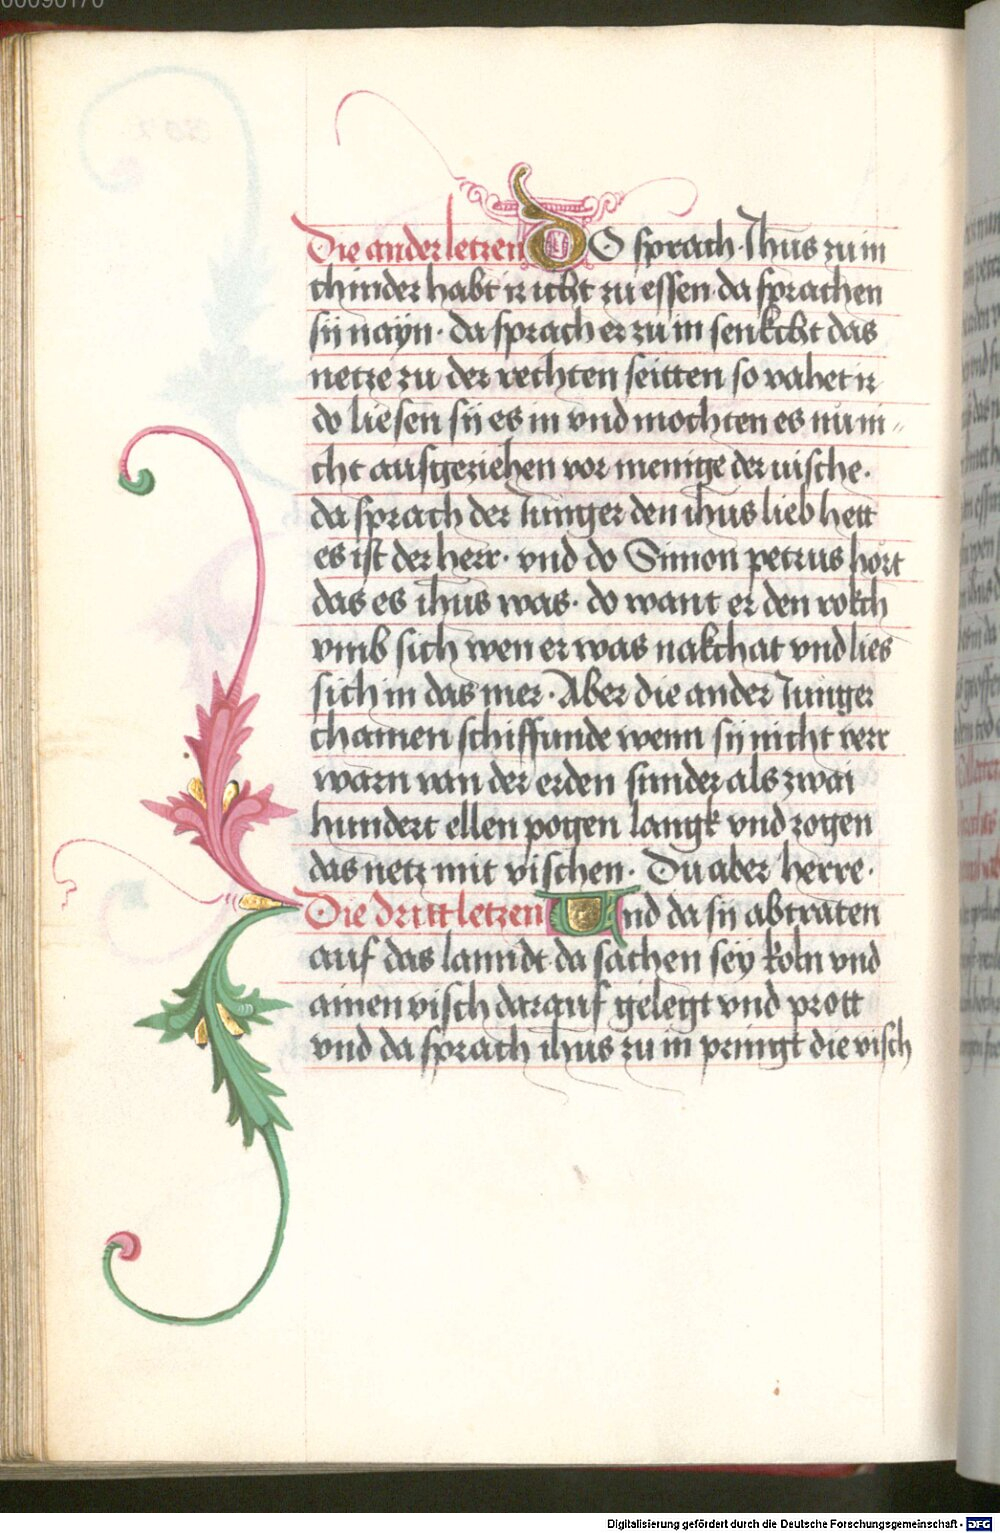 00090170
Die ander letzen DO sprach Jhus zu in
chinder habt ir icht zu essen da sprachen
sÿ naÿn · da sprach er zu in senkcht das
netze zu der rechten seitten so vahet ir
do liesen sÿ es in vnd mochten es nům //
cht aufgeziehen vor menige der uische ·
da sprach der Junger den ihus lieb hett
es ist der herr · vnd do Simon petrus hört
das es ihus was · do want er den rokch
vmb sich wen er was nakchat vnd lies
sich in das mer · Aber die ander Junger
chamen schiffunde wenn sÿ nicht verr
warn van der erden sunder als zwai
hundert ellen pogen langk vnd zogen
das netz mit vischen · Du aber herre ·
Die dritt letzen Und da sÿ abtraten
auf das lanndt da sachen seÿ koln vnd
ainen visch darauf gelegt vnd prott
vnd da sprach ihus zu in pringt die visch
Digitalisierung gefördert durch die Deutsche Forschungsgemeinschaft - DFG